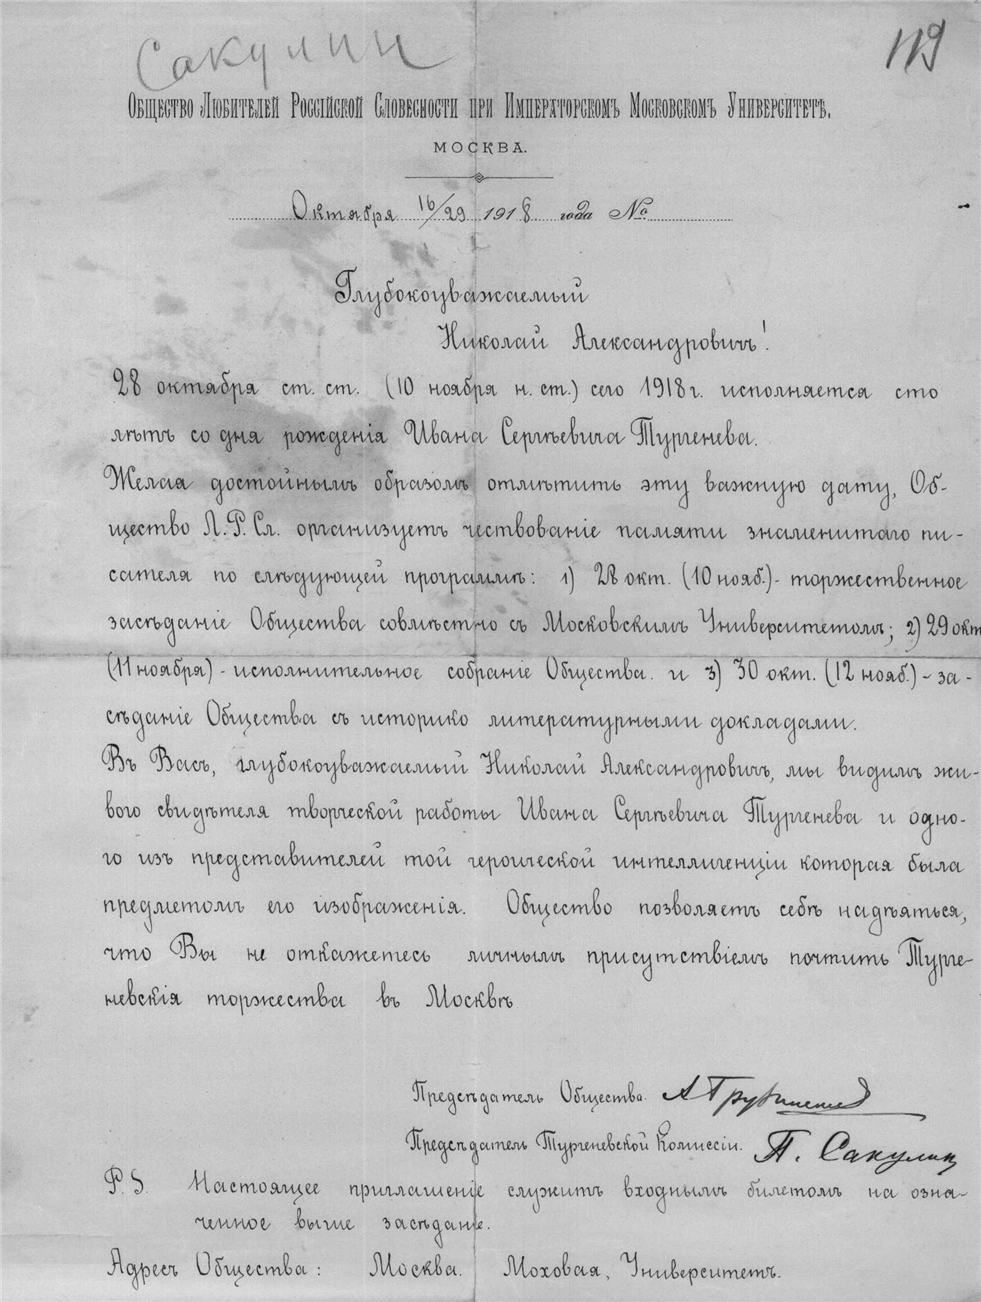 Сакулин
119
Общество Любителей Россійской Словесности при Императорскомъ Московскомъ Университетѣ.
МОСКВА.
Октября 16/29 1918 года №
Глубокоуважаемый
Николай Александровичъ!
28 октября ст. ст. (10 ноября н. ст.) сего 1918 г. исполняется сто
лѣтъ со дня рожденія Ивана Сергѣевича Тургенева.
Желая достойнымъ образомъ отмѣтить эту важную дату, Об-
щество Л. Р. Сл. организуетъ чествованіе памяти знаменитаго пи-
сателя по слѣдующей программѣ: 1) 28 окт. (10 нояб.) - торжественное
засѣданіе Общества совмѣстно съ Московскимъ Университетомъ; 2) 29 окт
(11 ноября) - исполнительное собраніе Общества. и 3) 30 окт. (12 нояб.) - за-
сѣданіе Общества съ историко литературными докладами.
Въ Васъ, глубокоуважаемый Николай Александровичъ, мы видимъ жи-
вого свидѣтеля творческой работы Ивана Сергѣевича Тургенева и одно-
го изъ представителей той героической интеллигенціи которая была
предметомъ его изображенія. Общество позволяетъ себѣ надѣяться,
что Вы не откажетесь личнымъ присутствіемъ почтить Турге-
невскія торжества въ Москвѣ
Предсѣдатель Общества.
Предсѣдатель Тургеневской Комиссіи. П. Сакулин
P. S. Настоящее приглашеніе служитъ входнымъ билетомъ на озна-
ченное выше засѣдание.
Адресъ Общества: Москва. Моховая, Университетъ.